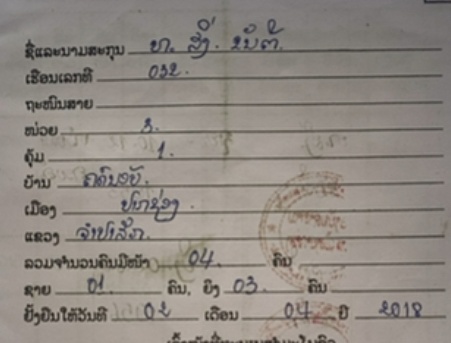 ຊື່ແລະນາມສະກຸນ ທ. ສີງ
ເຮືອນເລກທີ 032.
ຖະໜົນສາຍ
ໜ່ວຍ 3.
ຄຸ້ມ 1.
ບ້ານ
ເມືອງ ປາກຊ່ອງ
ແຂວງ ຈຳປາສັກ
ລວມຈຳນວນຄົນມີໜ້າ 04. ຄົນ
ຊາຍ 01. ຄົນ, ຍິງ 03. ຄົນ
ຢັ້ງຢືນໃຫ້ວັນທີ 02 ເດືອນ 04 ປີ 2018